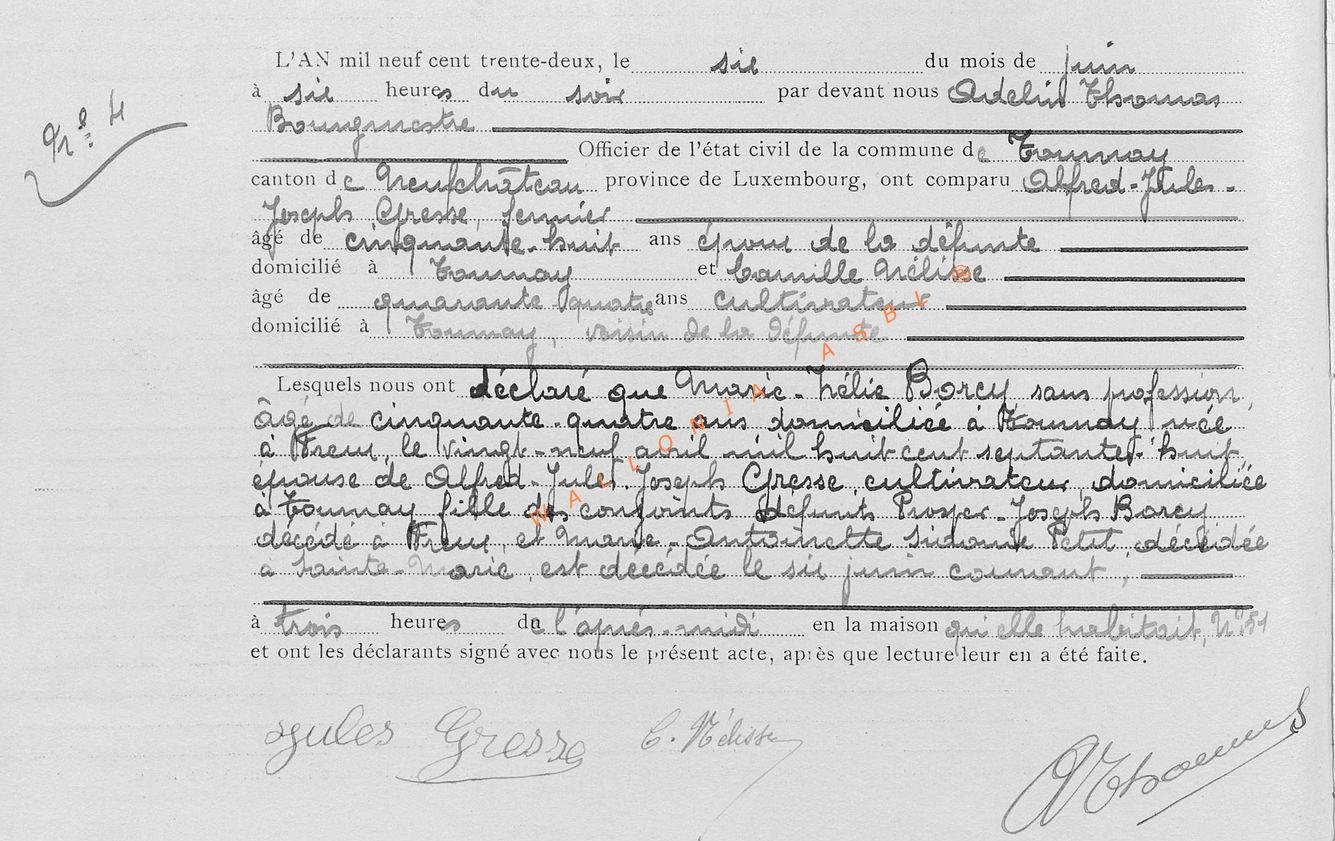 L'AN mil neuf cent trente-deux, le six du mois de juin
à six heures du soir par devant nous Adelin Thomas
Nº 4
Bourgmestre
Officier de l'état civil de la commune de Tournay
canton de Neufchâteau province de Luxembourg, ont comparu Alfred-Jules-
Joseph Gresse, fermier
âgé de cinquante-huit ans époux de la défunte
domicilié à Tournay et Camille Nélisse
âgé de quarante quatre ans cultivateur
domicilié à Tournay, voisin de la défunte
Lesquels nous ont déclaré que Marie-Zélie Borcy sans profession,
âgé de cinquante-quatre ans domiciliée à Tournay née
à Freux, le vingt-neuf avril mil huit cent septante-huit,
épouse de Alfred-Jules-Joseph Gresse, cultivateur, domiciliée
à Tournay fille des conjoints défunts Prosper-Joseph Borcy
décédé à Freux, et Marie-Antoinette Sidonie Petit, décédée
à Sainte-Marie, est décédée le six juin courant,
à trois heures de l'après-midi en la maison qu'elle habitait, Nº 51
et ont les déclarants signé avec nous le présent acte, après que lecture leur en a été faite.
WALLONIA ASBL ©
Jules Gresse C. Nélisse AThomas